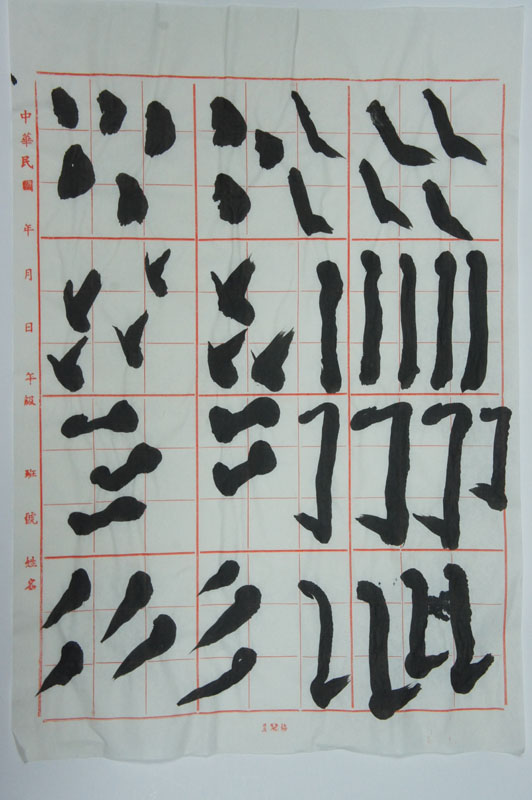 中華民國 年 月 日 年級 班 號 姓名